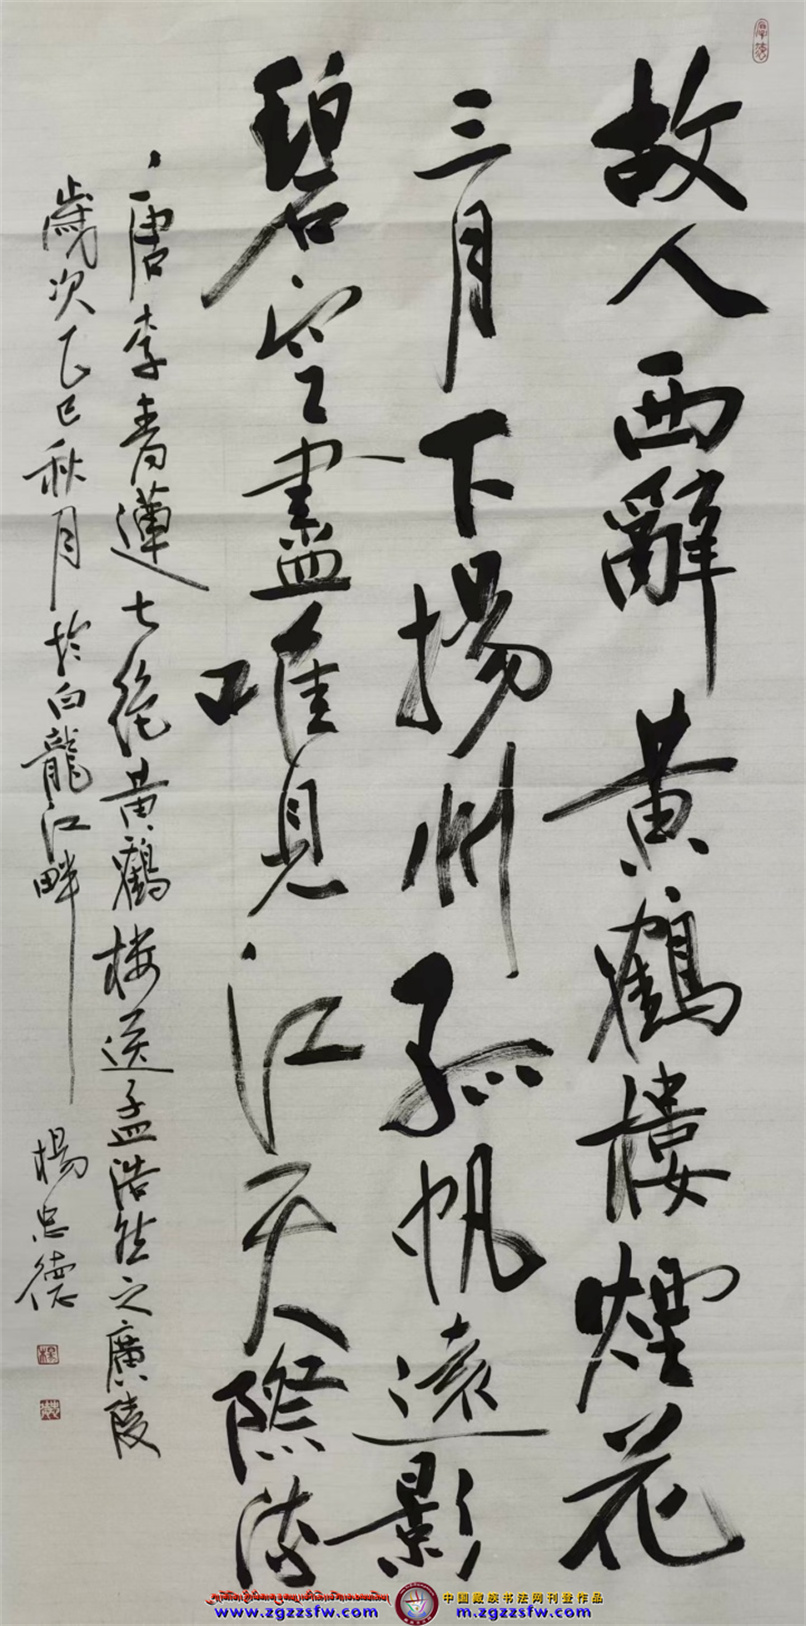 故人西辭黄鶴樓煙花
三月下揚州孤帆遠影
碧空盡唯見江天際流
唐李青蓮七絶黄鶴楼送孟浩然之廣陵
歲次乙巳秋月於白龍江畔 楊忠德
中国藏族书法网刊登作品
www.zgzzsfw.com
m.zgzzsfw.com